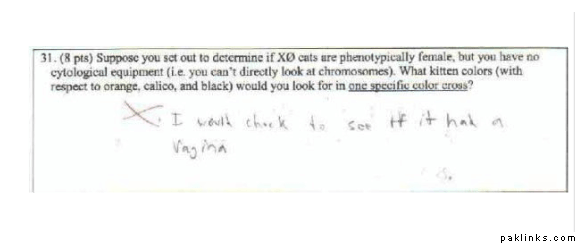 31. (8 pts) Suppose you set out to determine if XØ cats are phenotypically female, but you have no
cytological equipment (i.e. you can't directly look at chromosomes). What kitten colors (with
respect to orange, calico, and black) would you look for in one specific color cross?
I would check to see if it had a
Vagina
paklinks.com